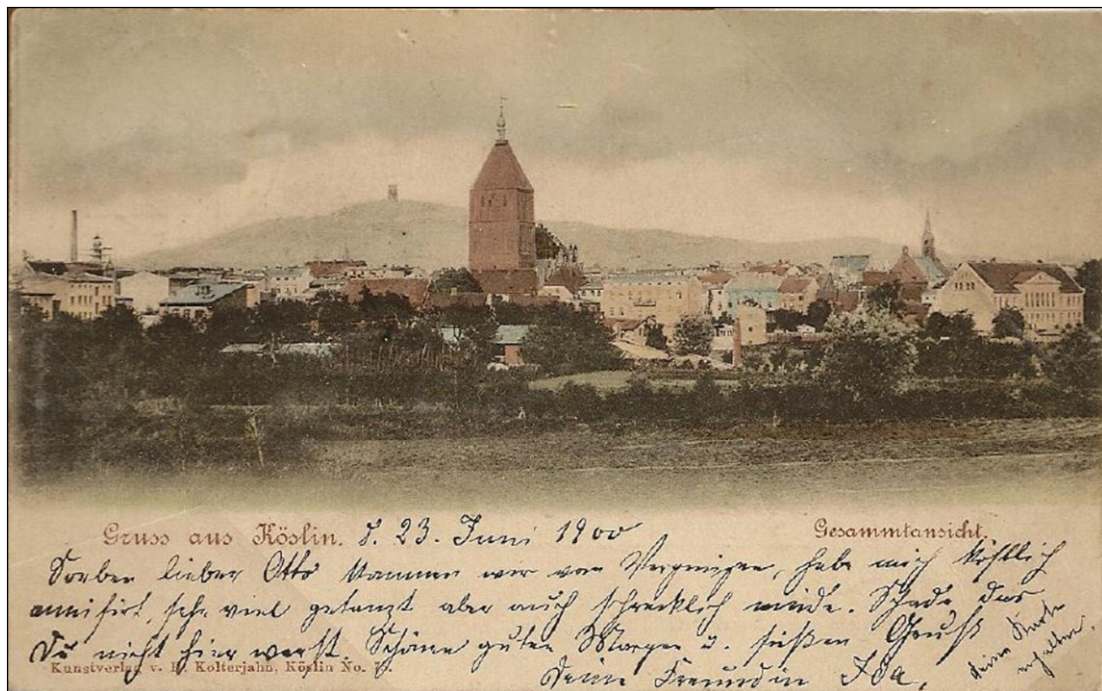 Gruss aus Köslin. d. 23. Juni 1900
Gesammtansicht.
Soeben lieber Otto kommen wir vom Vergnügen, habe mich köstlich
amisirt, sehr viel getanzt aber auch schrecklich müde. Schade das
Du nicht hier warst. Schönen guten Morgen u. süßen Gruß
Deine Freundin Ida.
deine Karte
erhalten.
Kunstverlag v. H. Kolterjahn, Köslin No.